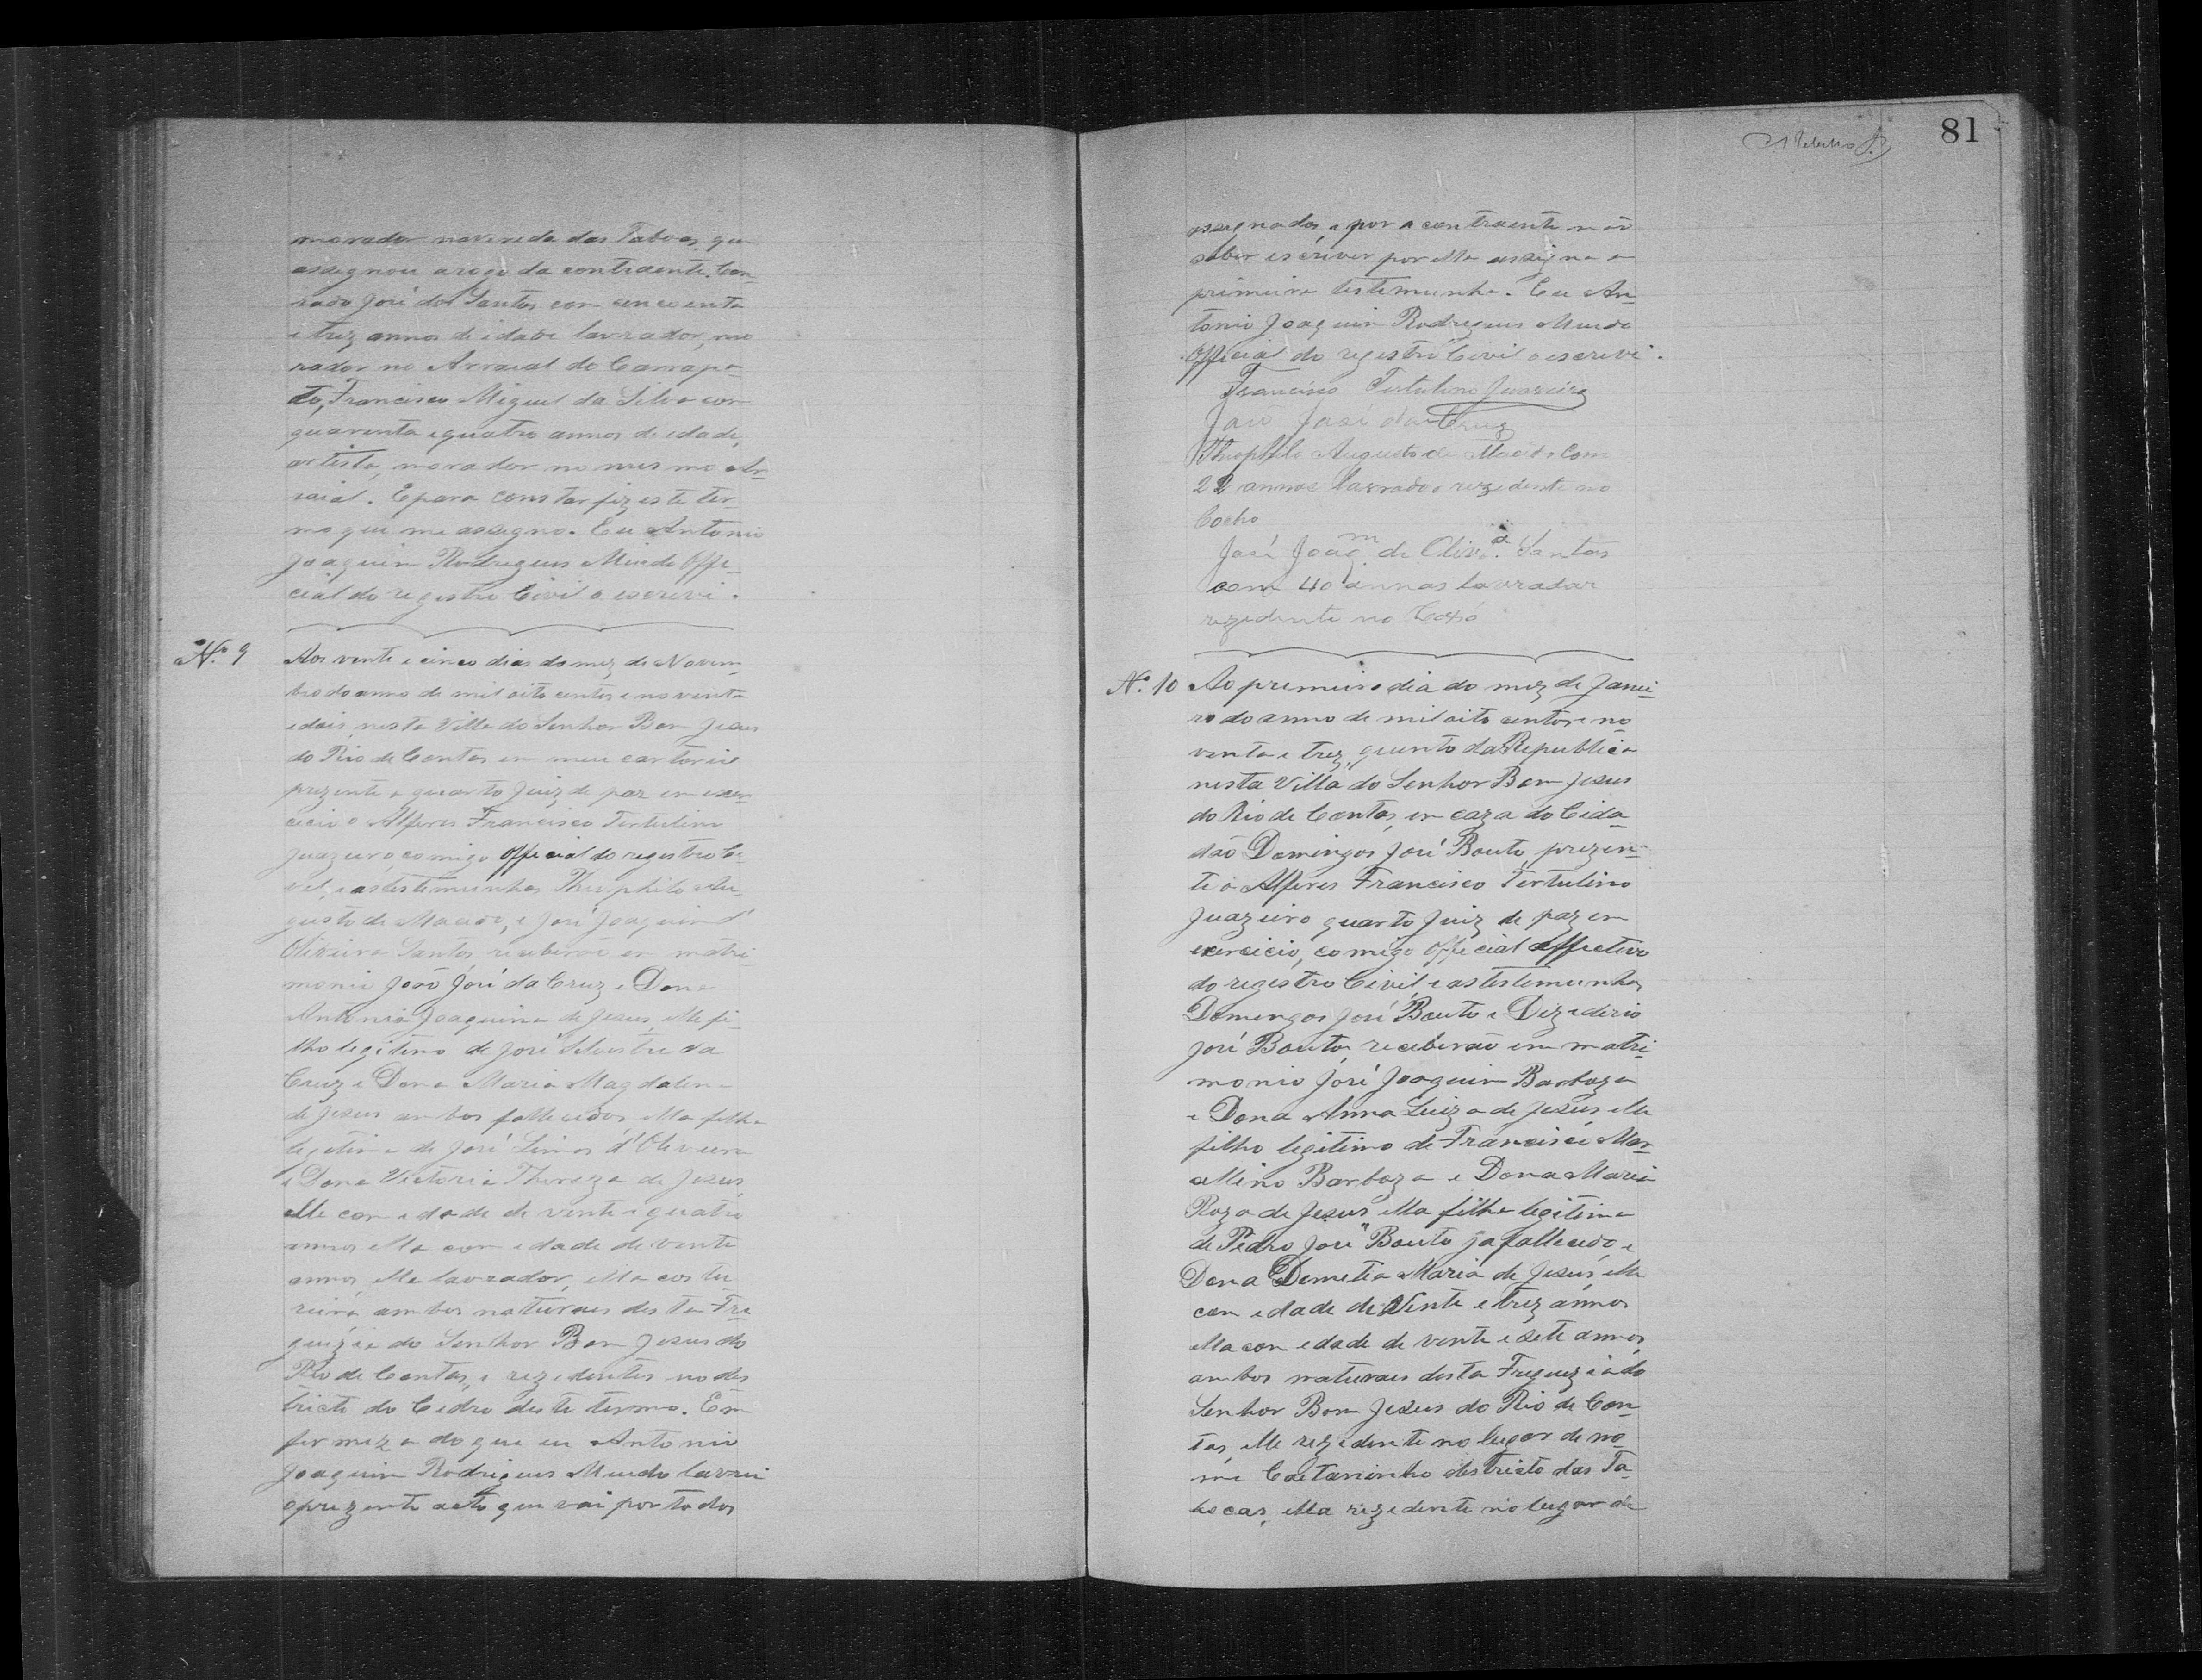 morador na vereda das Taboas, que
assegnou a rogo da contraente. Con-
rado José dos Santos com cencoenta
e trez annos de idade lavrador, mo
rador no Arraial do Carrapa-
to, Francisco Miguel da Silva com
quarenta e quatro annos de edade,
artista, morador no mesmo Ar-
raial. E para constar fiz este ter-
mo que me assegno. Eu Antonio
Joaquim Rodrigues Offi-
cial do registro Civil o escrevi.
Nº 9
Aos vente e cinco dias do mez de Novem-
bro do anno de mil oito centos e noventa
e dois nesta Villa do Senhor Bom Jesus
do Rio de Contas em meu cartorio
prezente o quarto Juiz de paz em exer-
cicio o Alferes Francisco Tertulino
Juazeiro, comigo Official do registro Ci-
vel, e as testemunhas Theophilo Au-
gusto de Macedo, e José Joaquim d'
Oliveira Santos receberão em matri-
monio João José da Cruz e Dona
Antonia Joaquina de Jesus, elle fi-
lho legitimo de José Silvestre da
Cruz e Dona Maria Magdalena
de Jesus ambos fallecidos, ella filha
legitima de José Lino d'Oliveira
e Dona Victoria Thereza de Jesus,
elle com edade de vente e quatro
annos ella com edade de vente
annos, elle lavrador, ella costu
reira ambos naturaes desta Fre
guezia do Senhor Bom Jesus do
Rio de Contas, e rezedentes no des
tricto do Cedro deste termo. Em
fermeza do que eu Antonio
Joaquim Rodrigues lavrei
o prezente acto que vai por todos
81
assegnados e por a contraente não
saber escriver por ella assigna a
primeira testemunha. Eu An-
tonio Joaquim Rodrigues
Official do registro Civil o escrevi.
Francisco Tertulino Juazeiro
João José da Cruz
Theophilo Augusto de Macêdo Com
22 annos lavrador rezedente no
Cocho
José Joaqm de Olivra Santos
com 40 annos lavrador
rezedente no
Nº 10 Ao premeiro dia do mez de Janei-
ro do anno de mil oito centos e no-
venta e trez, quinto da Republica
nesta Villa do Senhor Bom Jesus
do Rio de Contas, em caza do Cida-
dão Domingos José Bouto, prezen-
te o Alferes Francisco Tertulino
Juazeiro quarto Juiz de paz em
exercicio, comigo official effectivo
do registro Civil, e as testemunhas
Domingos José Bouto e Dezederio
José Bouto, receberão em matri-
monio José Joaquim Barboza
e Dona Anna Luiza de Jesus, elle
filho legitimo de Francisco Mar-
cellino Barboza e Dona Maria
Roza de Jesus, ella filha legitima
de Pedro José Bouto ja fallecido, e
Dona Demetia Maria de Jesus, elle
com edade de Vente e trez annos
ella com edade de vente e sete annos,
ambos naturaes desta Freguezia do
Senhor Bom Jesus do Rio de Con-
tas, elle rezedente no lugar de no-
me Caetaninho destricto das Ta-
bocas, ella rezedente no lugar de